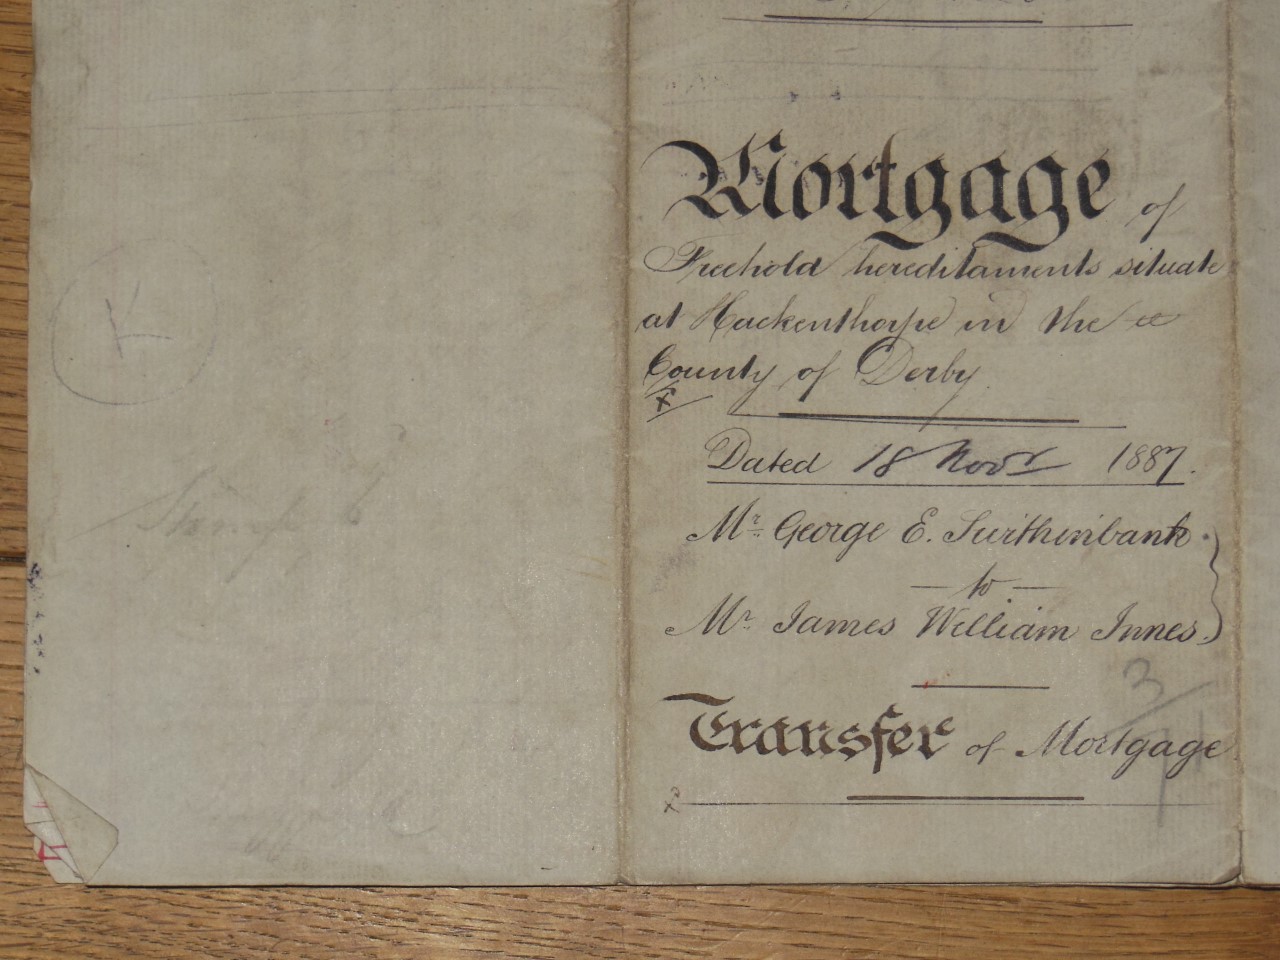 Mortgage of
Freehold hereditaments situate
at Hackenthorpe in the
County of Derby
Dated 18 Novr 1887.
Mr George E. Swithinbank
to
Mr James William Innes.
3
Transfer of Mortgage
K